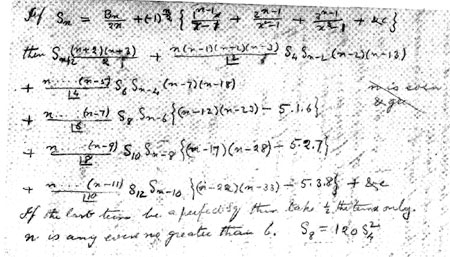 If Sn = Bn/2n + (-1)^(n/2) { 1^(n-1)x/(1-x) + 2^(n-1)/(x^2-1) + 3^(n-1)/(x^3-1) + &c }
then Sn+2 (n+2)(n+3)/2 + n(n-1)(n-2)(n-3)/|2 S4 Sn-2 (n-2)(n-13)
+ n.....(n-5)/|4 S6 Sn-4 (n-7)(n-18)
+ n.....(n-7)/|6 S8 Sn-6 {(n-12)(n-23) - 5.1.6}
+ n.....(n-9)/|8 S10 Sn-8 {(n-17)(n-28) - 5.2.7}
+ n.....(n-11)/|10 S12 Sn-10 {(n-22)(n-33) - 5.3.8} + &c
If the last term be a perfect sq then take ½ the term only.
n is any even no greater than 6. S8 = 120 S4^2
n is even